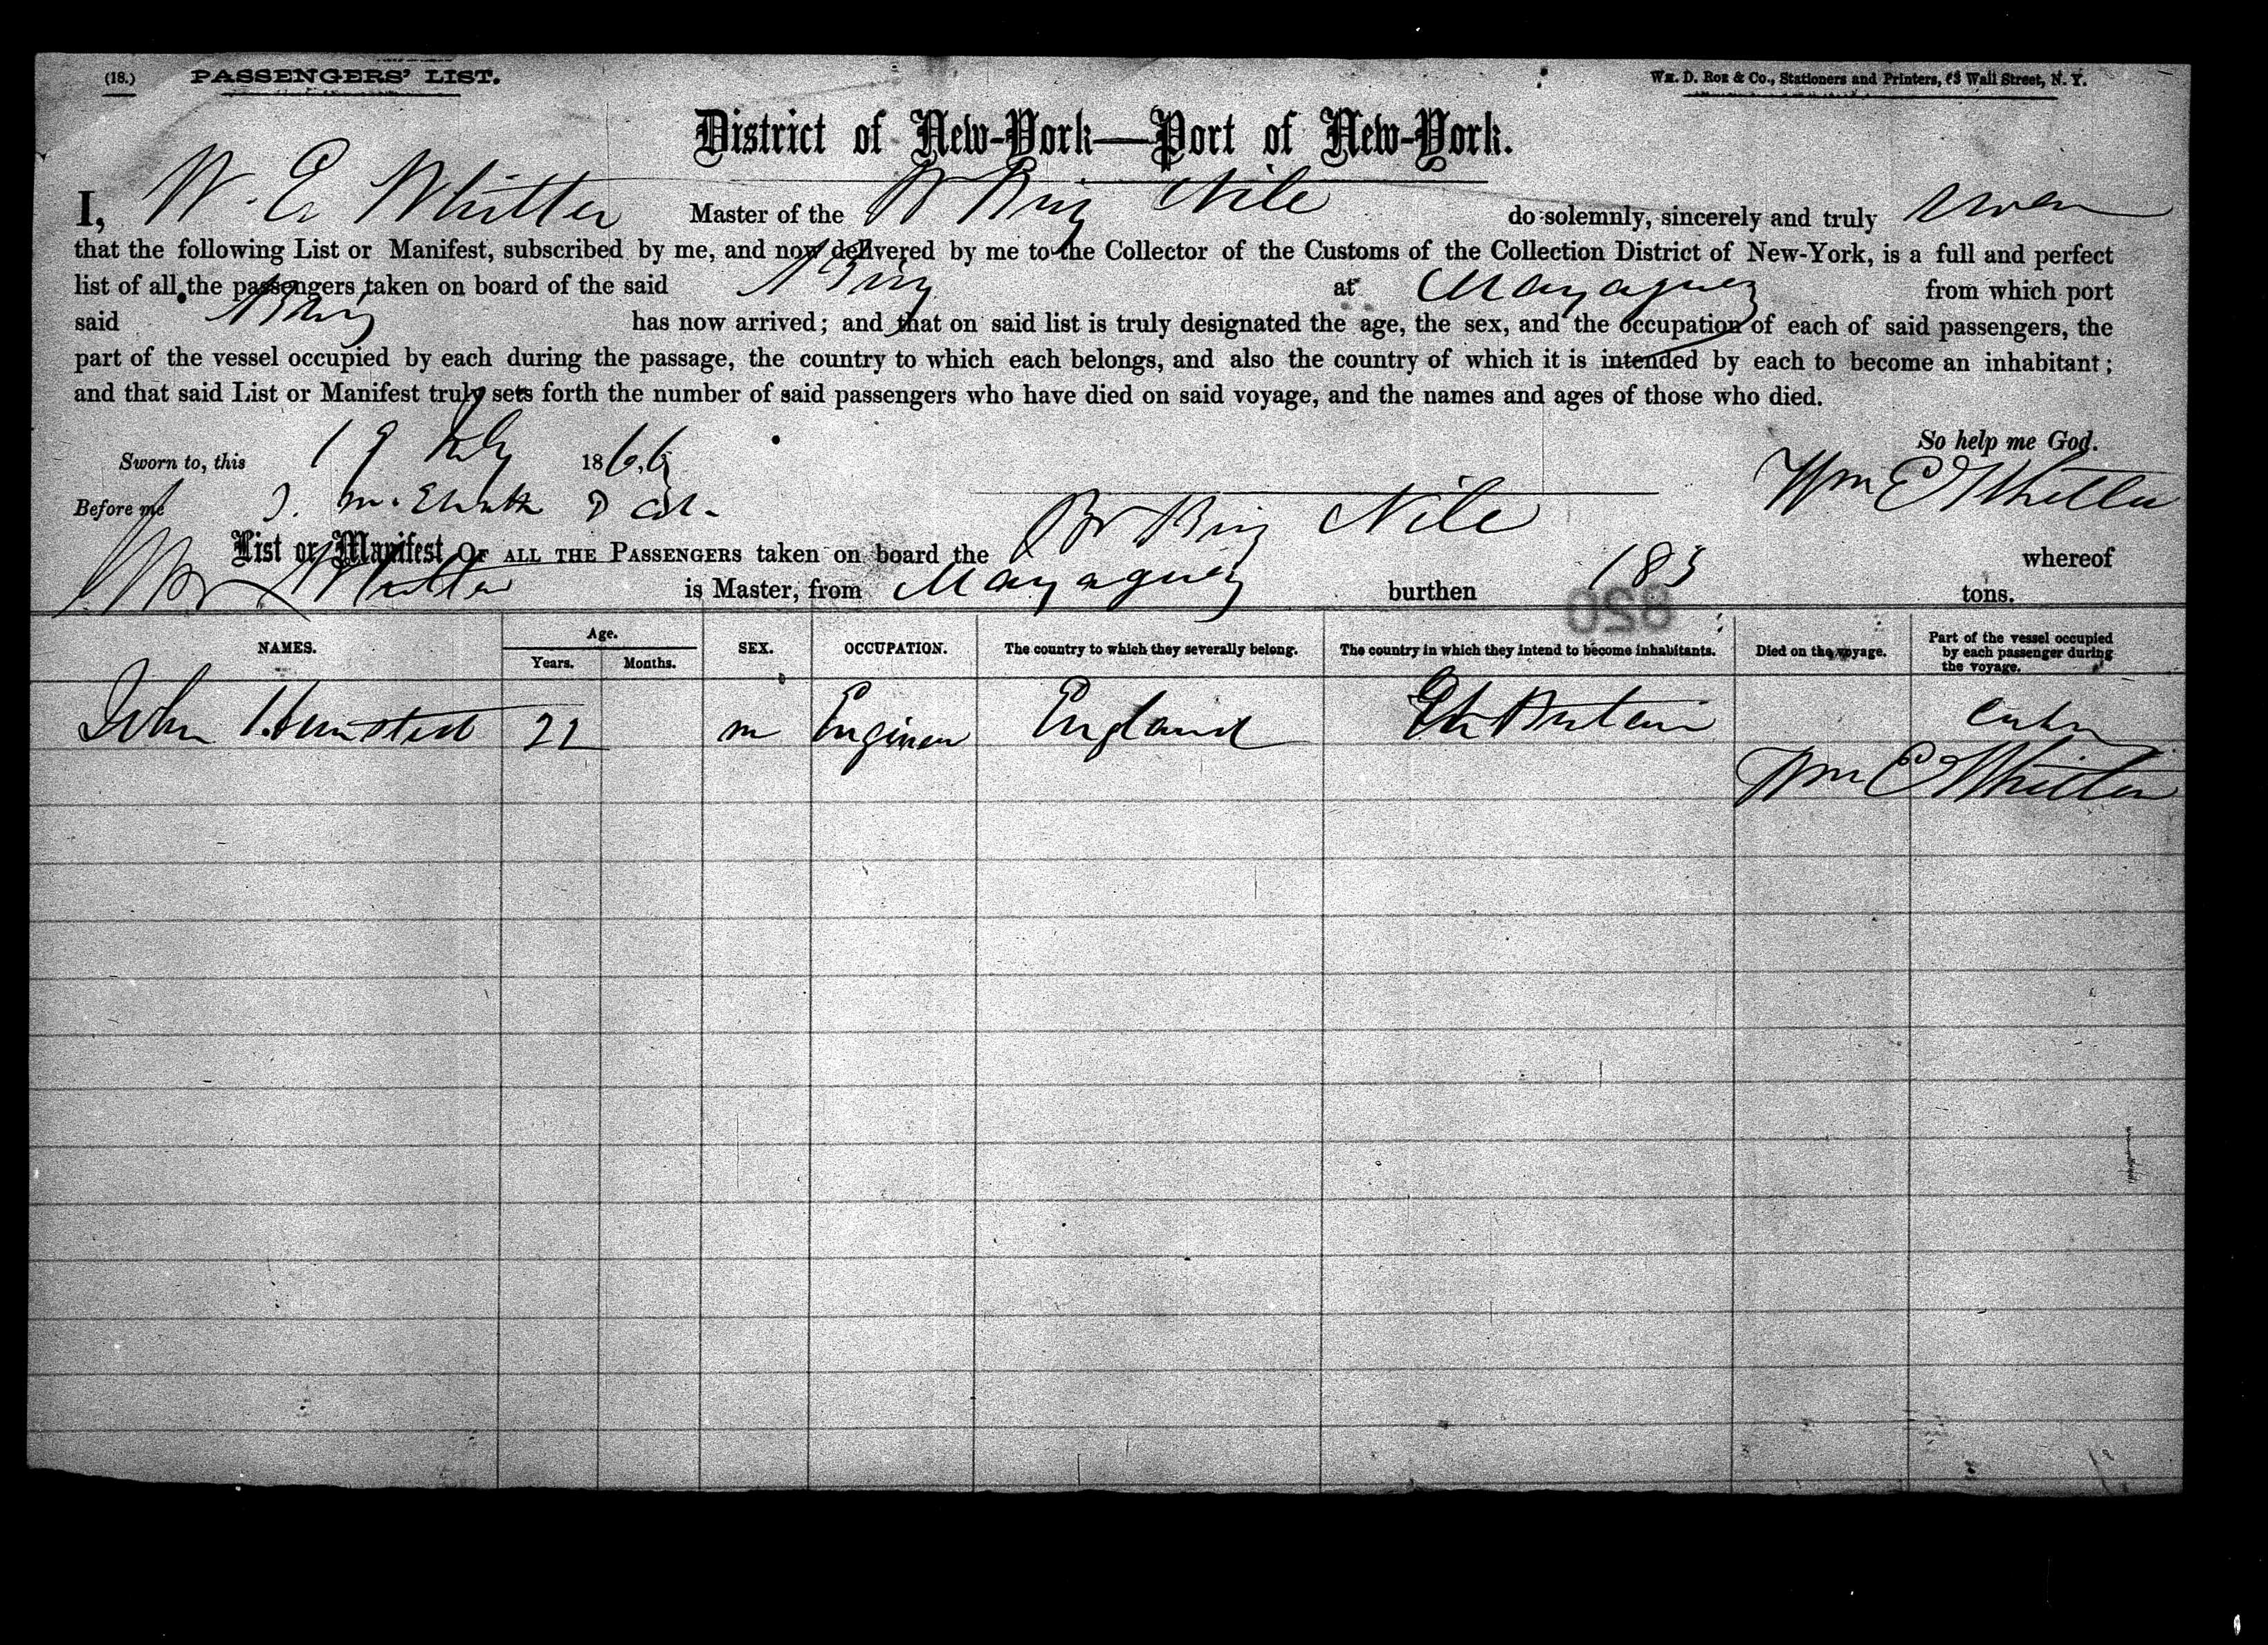 (18.) PASSENGERS' LIST. Wm. D. Roe & Co., Stationers and Printers, 63 Wall Street, N. Y.
District of New-York—Port of New-York.
I, W. E. Whitter Master of the Br Brig Nile do solemnly, sincerely and truly swear
that the following List or Manifest, subscribed by me, and now delivered by me to the Collector of the Customs of the Collection District of New-York, is a full and perfect
list of all the passengers taken on board of the said Brig at Mayaguez from which port
said Brig has now arrived; and that on said list is truly designated the age, the sex, and the occupation of each of said passengers, the
part of the vessel occupied by each during the passage, the country to which each belongs, and also the country of which it is intended by each to become an inhabitant;
and that said List or Manifest truly sets forth the number of said passengers who have died on said voyage, and the names and ages of those who died.
So help me God.
Sworn to, this 19 July 1866
Wm E Whitter
Before me
List or Manifest OF ALL THE PASSENGERS taken on board the Br Brig Nile whereof
Whitter is Master, from Mayaguez burthen 185 tons.
820
NAMES. Age. Years. Months. SEX. OCCUPATION. The country to which they severally belong. The country in which they intend to become inhabitants. Died on the voyage. Part of the vessel occupied by each passenger during the voyage.
John 22 m Engineer England Gt Britain
Wm E Whitter